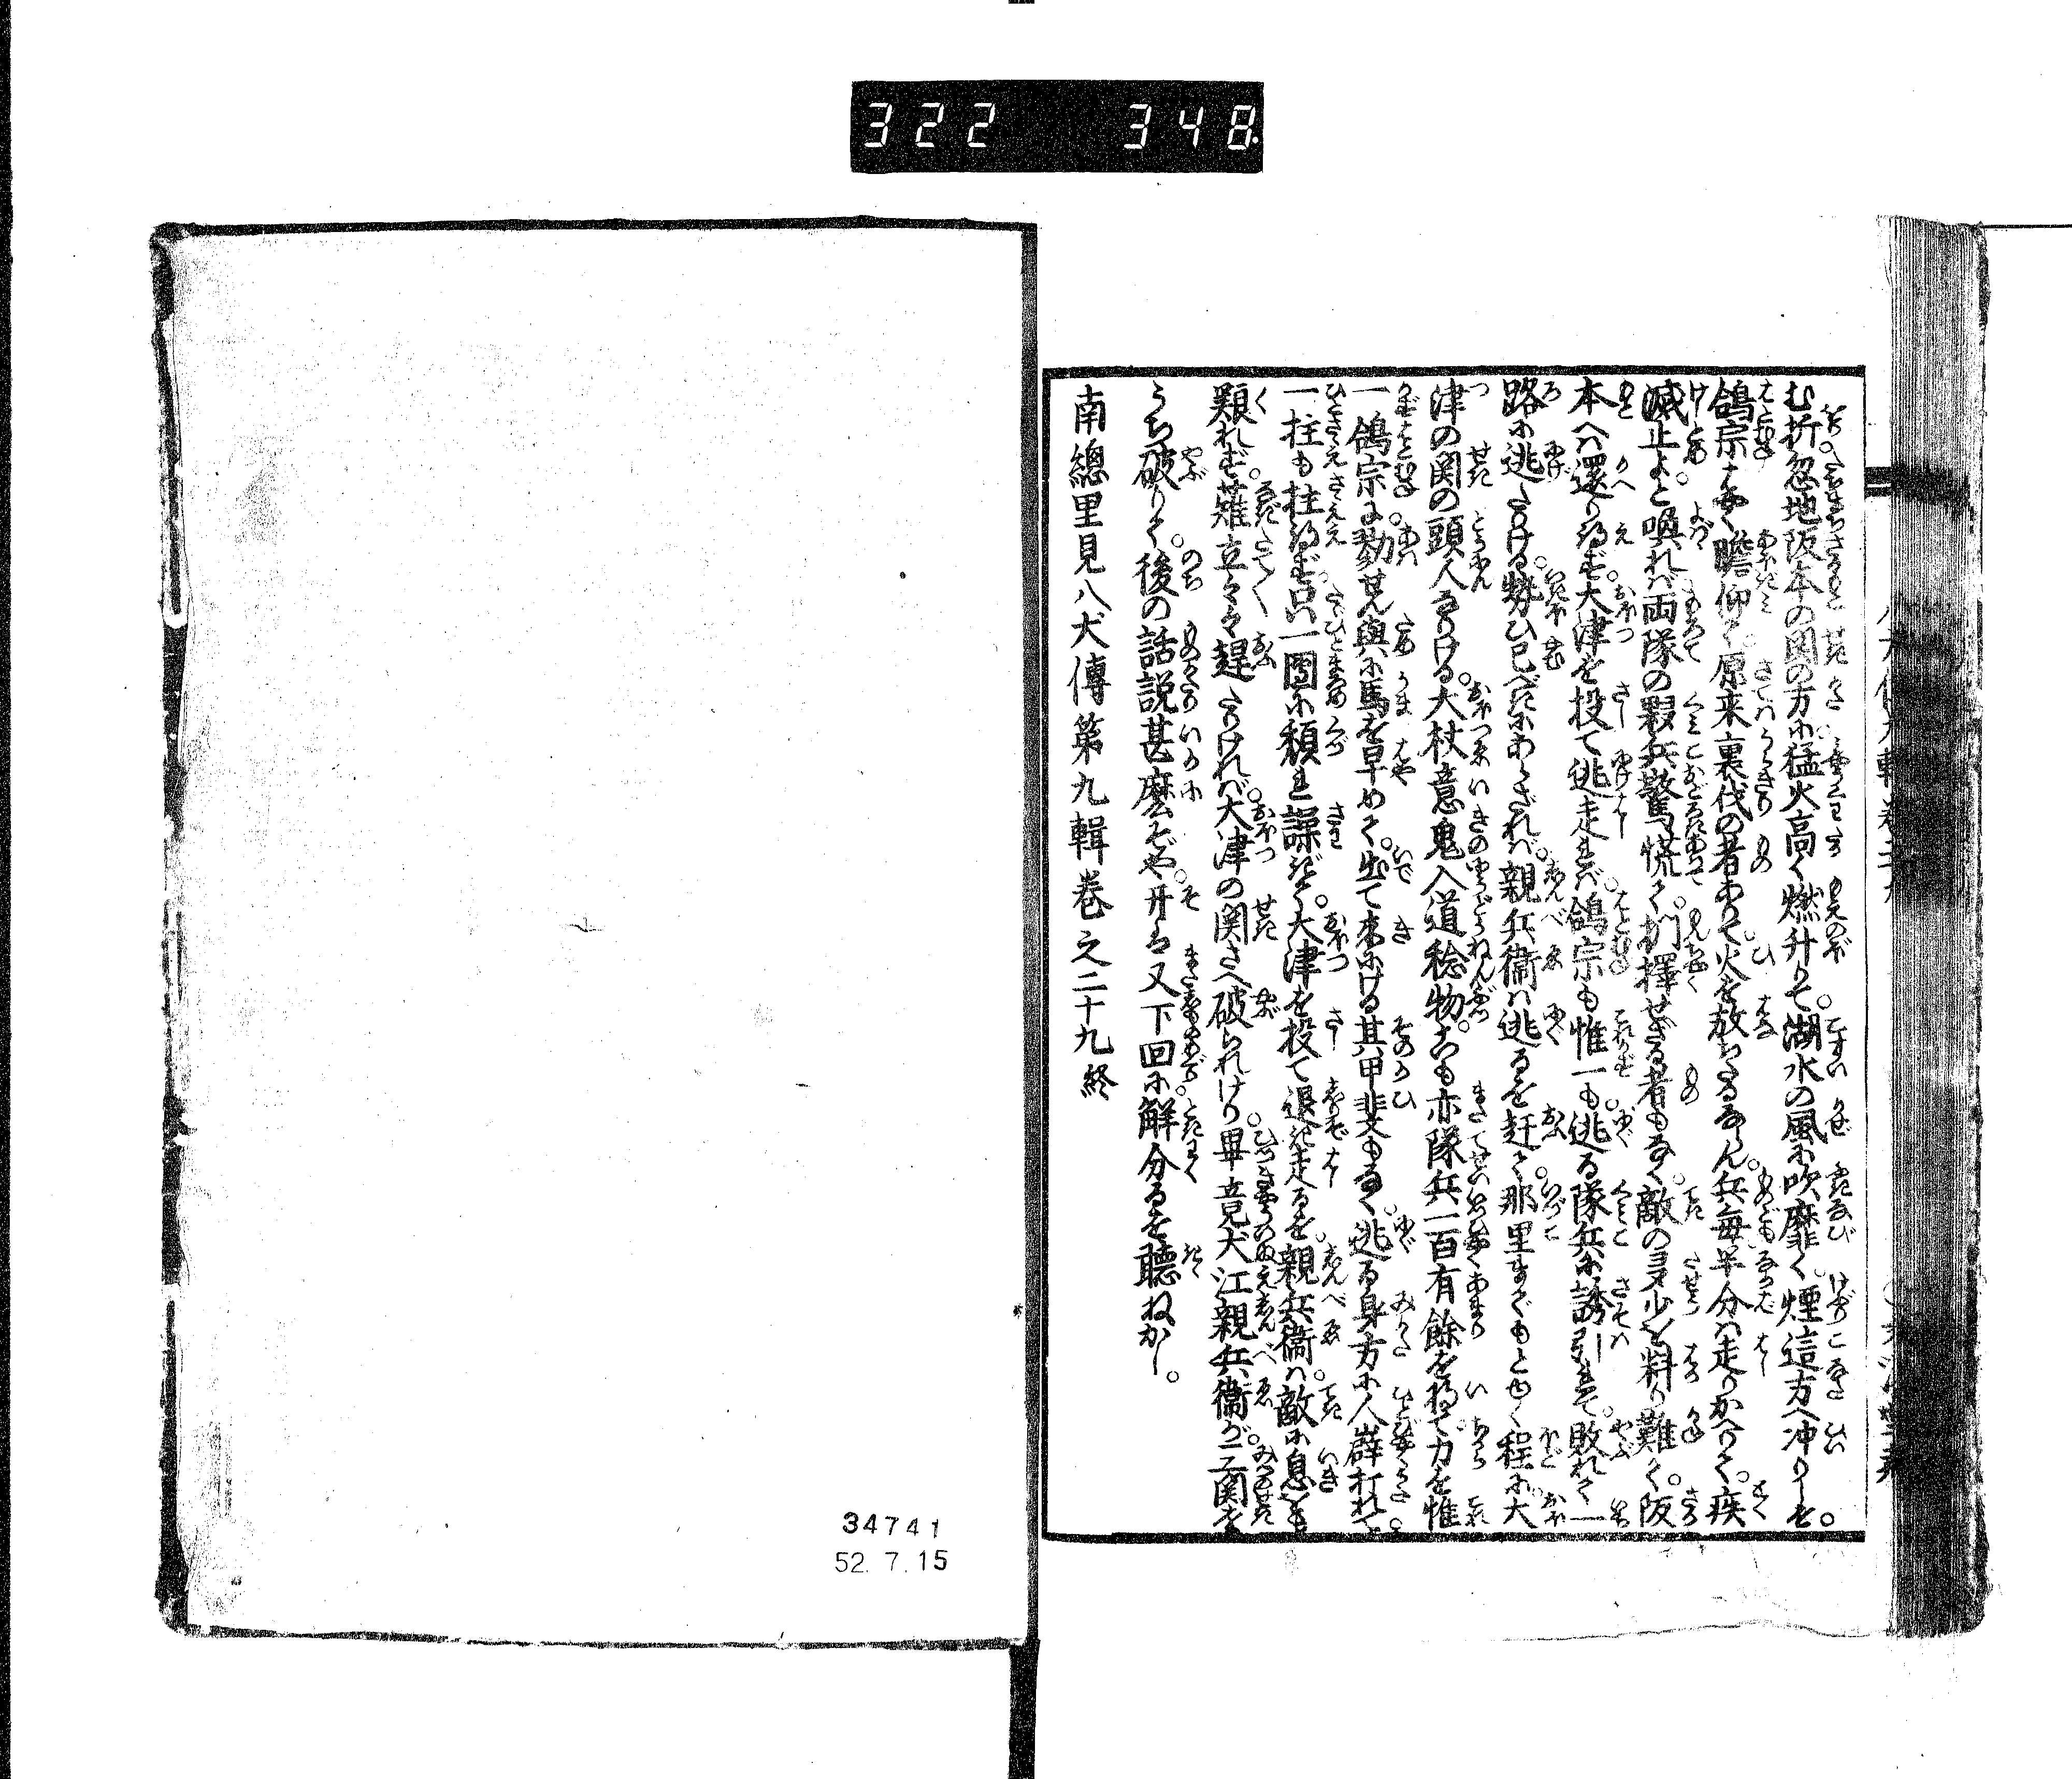 322 348
む折忽地阪本の関の方に猛火高く燃升りて湖水の風に吹靡く煙這方へ冲りしを。
鴿宗はやく瞻仰て原来裏伐の者ありて火を放ちたるならん兵毎半分は走りかへりて。疾
滅止よと喚れば両隊の夥兵驚慌て。捫擇せざる者もなく。敵の多少を料り難く。阪
本へは還り得ず。大津を投て逃走れば。鴿宗も惟一も。逃る隊兵に誘引れて。敗れて一
路に逃たりける。勢ひ已べきにあらざれば。親兵衛は逃るを赶て。那里までもとゆく程に。大
津の関の頭人なりける。大杖意鬼入道稔物。こも亦隊兵一百有餘を将て力を惟
一鴿宗に勠せん與に馬を早めて。出て来にける其甲斐もなく。逃る身方に人礕打れて
一柱も柱得ず。只一團に頽れ譟ぎて。大津を投て退き走るを。親兵衛は。敵に息をも
類れず。薙立々々趕たりければ。大津の関さへ破られけり。畢竟犬江親兵衛が。三関を
うち破りて。後の話説甚麽ぞや。开は又下回に觧分るを聽ねかし。
南總里見八犬傳第九輯巻之二十九終
34741
52.7.15